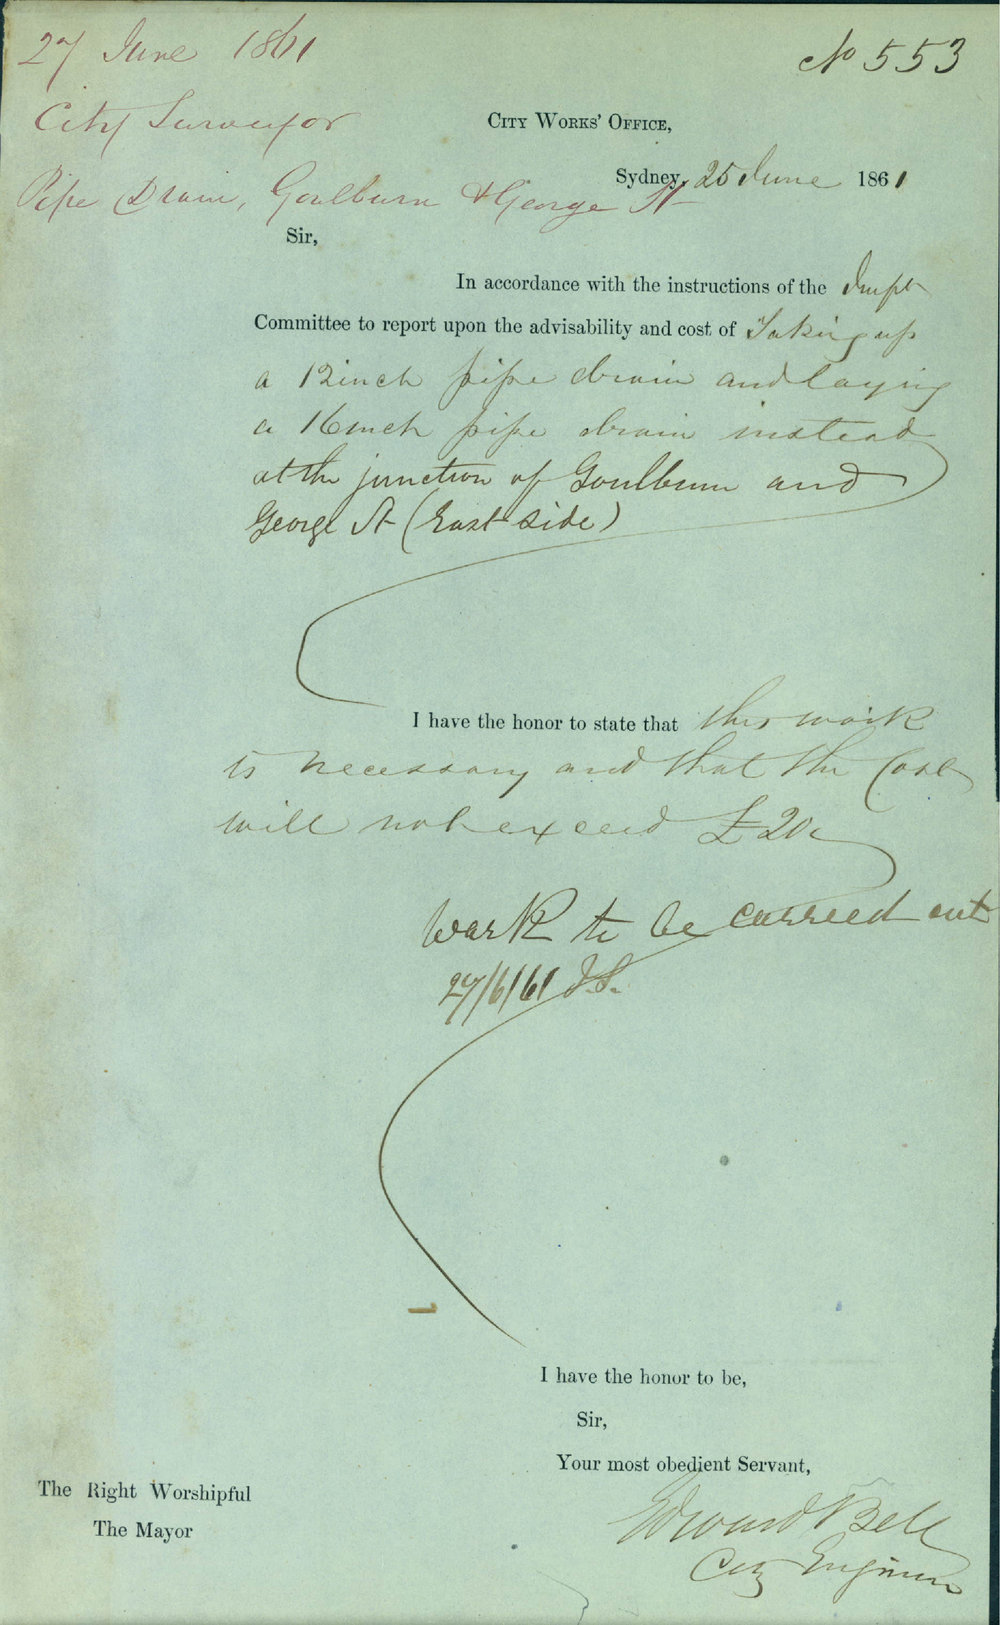 27 June 1861
No 553
City Surveyor
City Works' Office,
Sydney, 25 June 1861
Pipe Drain, Goulburn & George St
Sir,
In accordance with the instructions of the Impt
Committee to report upon the advisability and cost of Taking up
a 12 inch pipe drain and laying
a 16 inch pipe drain instead
at the junction of Goulburn and
George St (East side)
I have the honor to state that this work
is necessary and that the Cost
will not exceed £20
Work to be carreed out
27/6/61 J.S.
I have the honor to be,
Sir,
Your most obedient Servant,
Edward Bell
City Engineer
The Right Worshipful
The Mayor